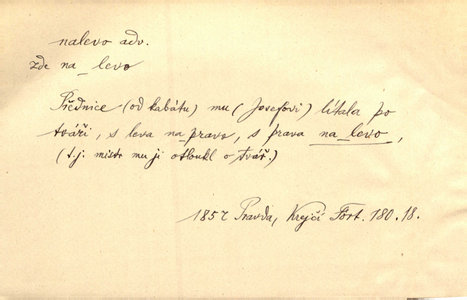 nalevo adv.
zde na_levo
Přednice (od kabátu) mu (Josefovi) lítala po
tváři, s leva na_pravo, s prava na_levo,
(t.j. místo mu ji otloukl o tvář.)
1857 Pravda, Krejčí Fort. 180.18.